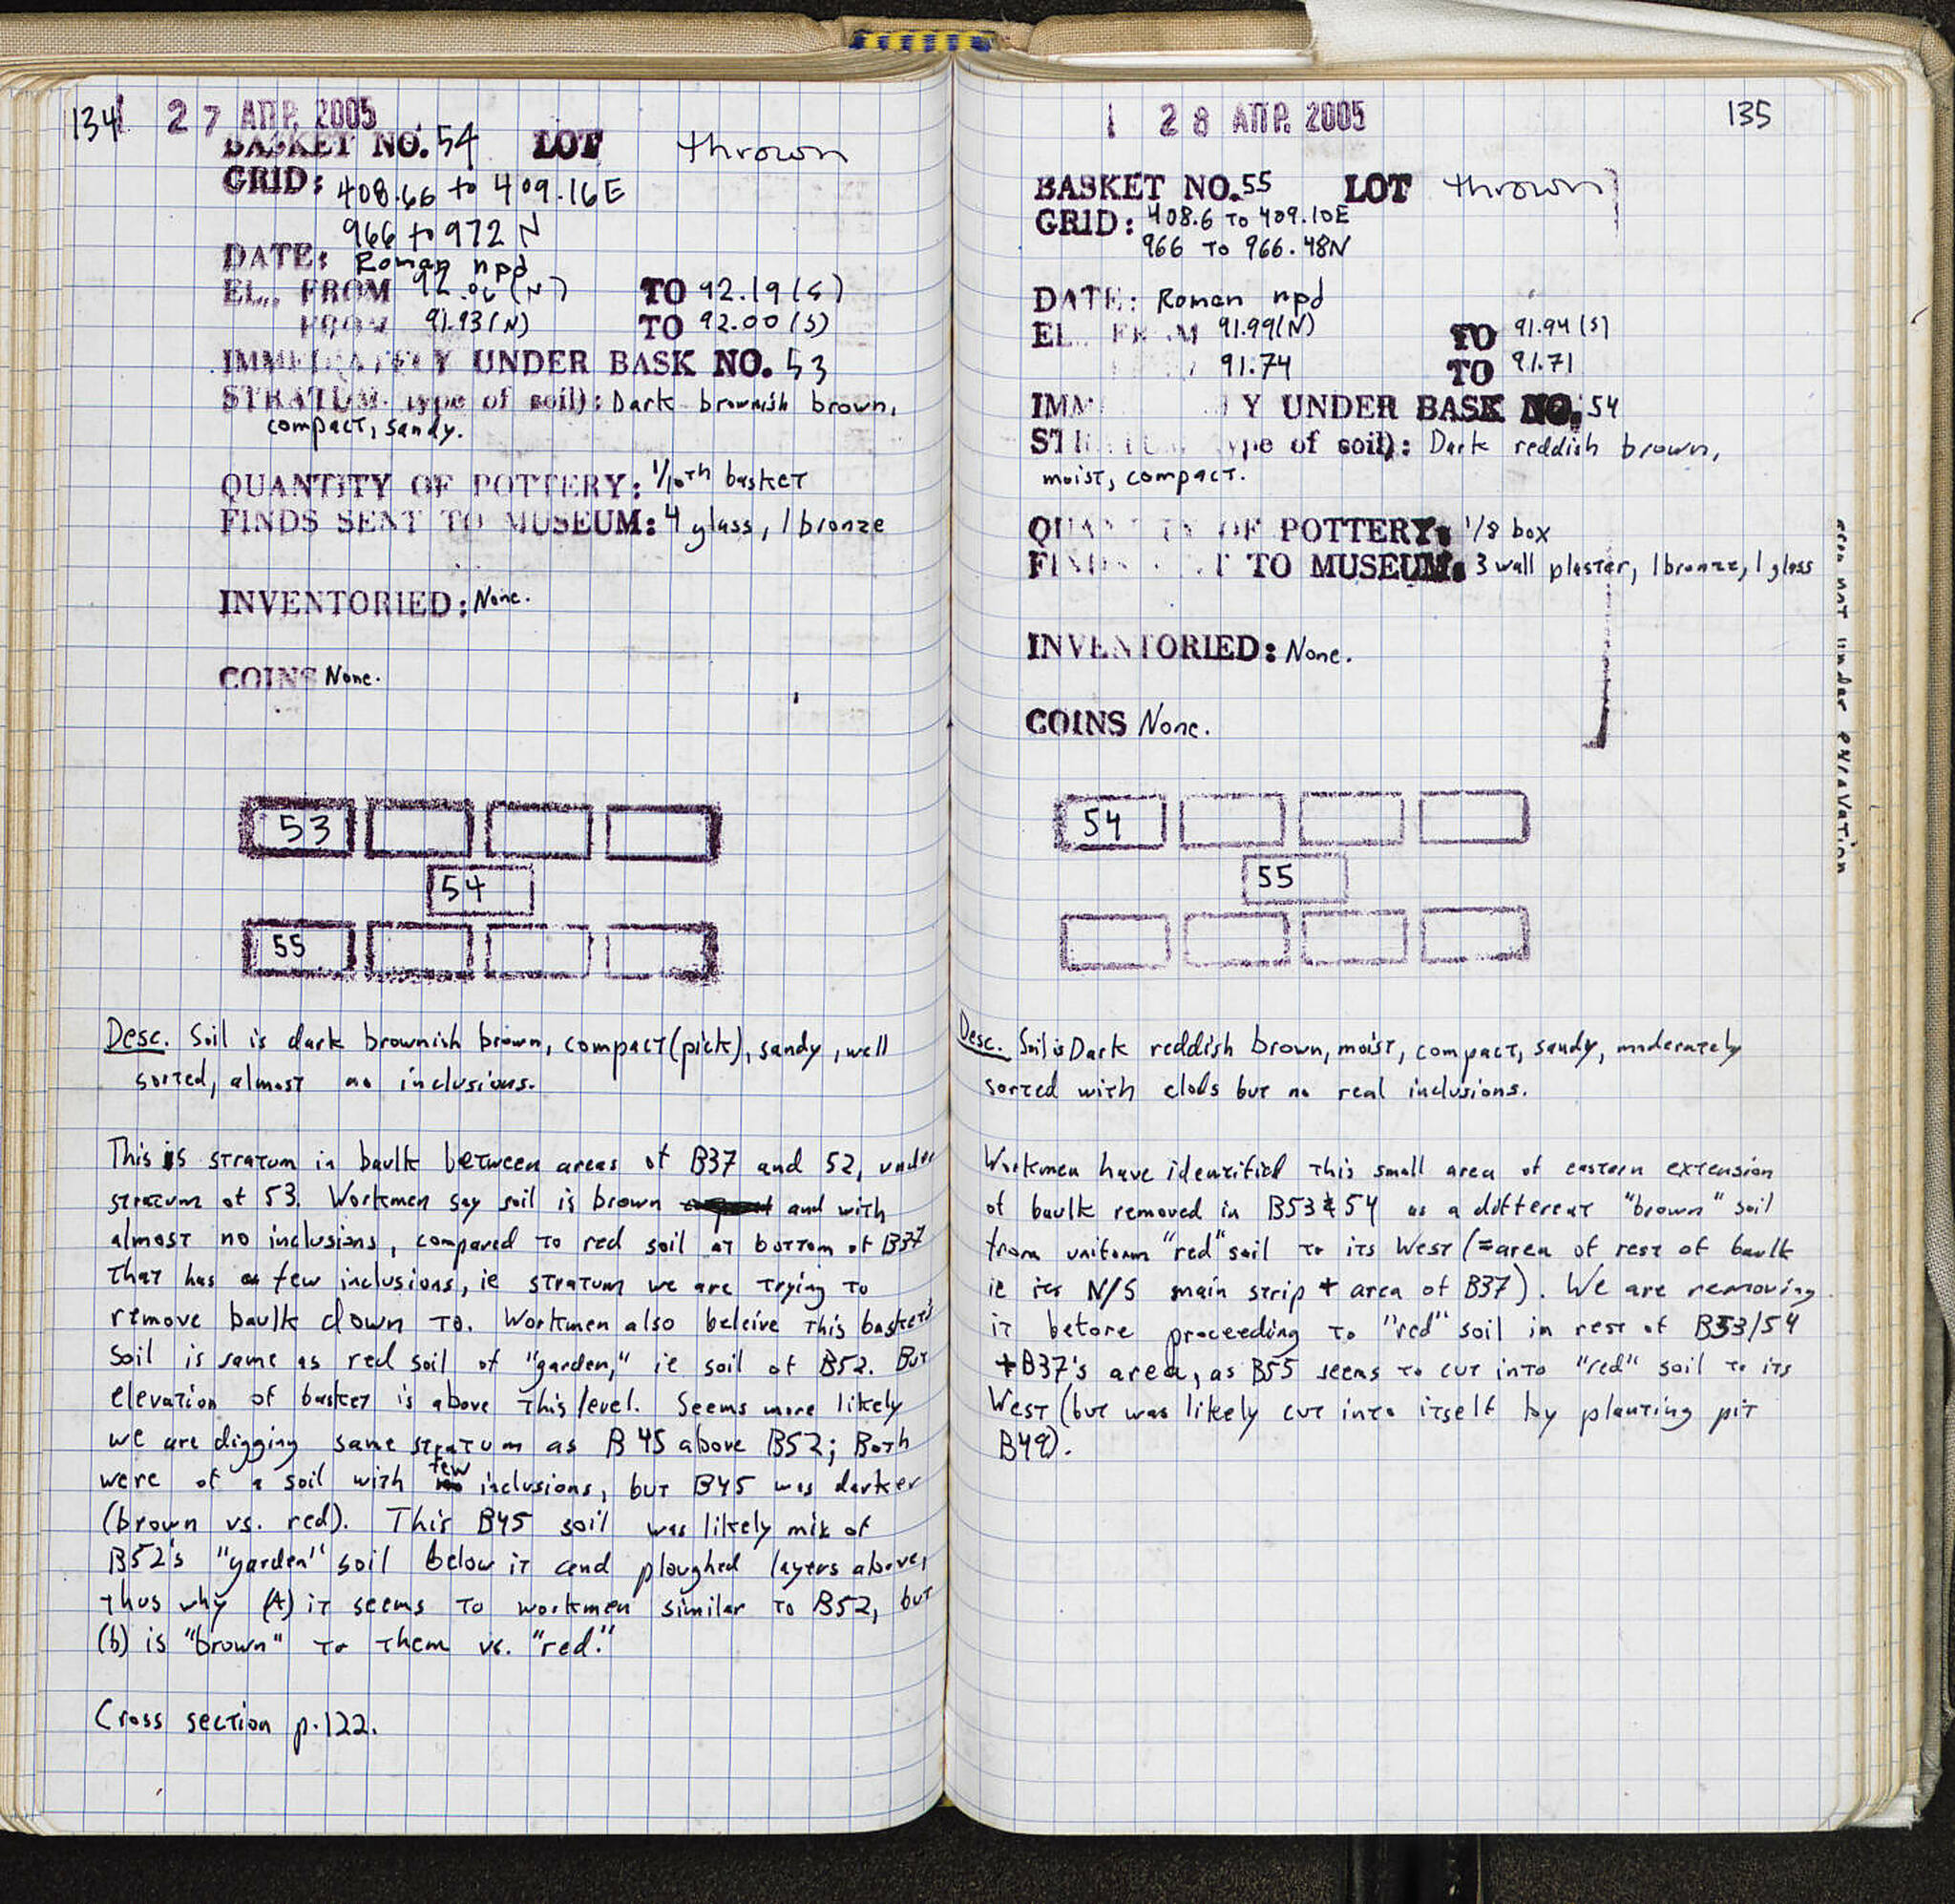 134
27 ΑΠΡ. 2005
BASKET NO. 54 LOT thrown
GRID: 408.66 to 409.16E
966 to 972 N
DATE: Roman npd
EL. FROM (N) TO 92.19(S)
FROM 91.93(N) TO 92.00(S)
IMMEDIATELY UNDER BASK NO. 53
STRATUM type of soil): Dark brownish brown,
compact, sandy.
QUANTITY OF POTTERY: 1/10th basket
FINDS SENT TO MUSEUM: 4 glass, 1 bronze
INVENTORIED: None.
COINS None.
53
54
55
Desc. Soil is dark brownish brown, compact (pick), sandy, well
sorted, almost no inclusions.
This is stratum in baulk between areas of B37 and 52, under
stratum of 53. Workmen say soil is brown and with
almost no inclusions, compared to red soil at bottom of B37
that has a few inclusions, ie stratum we are trying to
remove baulk down to. Workmen also beleive this basket's
soil is same as red soil of "garden," ie soil of B52. But
elevation of basket is above this level. Seems more likely
we are digging same stratum as B45 above B52; Both
were of a soil with few inclusions, but B45 was darker
(brown vs. red). This B45 soil was likely mix of
B52's "garden" soil below it and ploughed layers above,
thus why (A) it seems to workmen similar to B52, but
(b) is "brown" to them vs. "red."
Cross section p.122.
28 ΑΠΡ. 2005
135
BASKET NO. 55 LOT thrown
GRID: 408.6 to 409.10E
966 to 966.48N
DATE: Roman npd
EL. FROM 91.99(N) TO 91.94(S)
91.74 TO 91.71
IMM Y UNDER BASK NO. 54
STRATUM type of soil): Dark reddish brown,
moist, compact.
QUANTITY OF POTTERY: 1/8 box
FINDS SENT TO MUSEUM: 3 wall plaster, 1 bronze, 1 glass
INVENTORIED: None.
COINS None.
54
55
Desc. Soil is Dark reddish brown, moist, compact, sandy, moderately
sorted with clods but no real inclusions.
Workmen have identified this small area of eastern extension
of baulk removed in B53 & 54 as a different "brown" soil
from uniform "red" soil to its West (=area of rest of baulk
ie its N/S main strip + area of B37). We are removing
it before proceeding to "red" soil in rest of B53/54
+ B37's area, as B55 seems to cut into "red" soil to its
West (but was likely cut into itself by planting pit
B49).
not under excavation